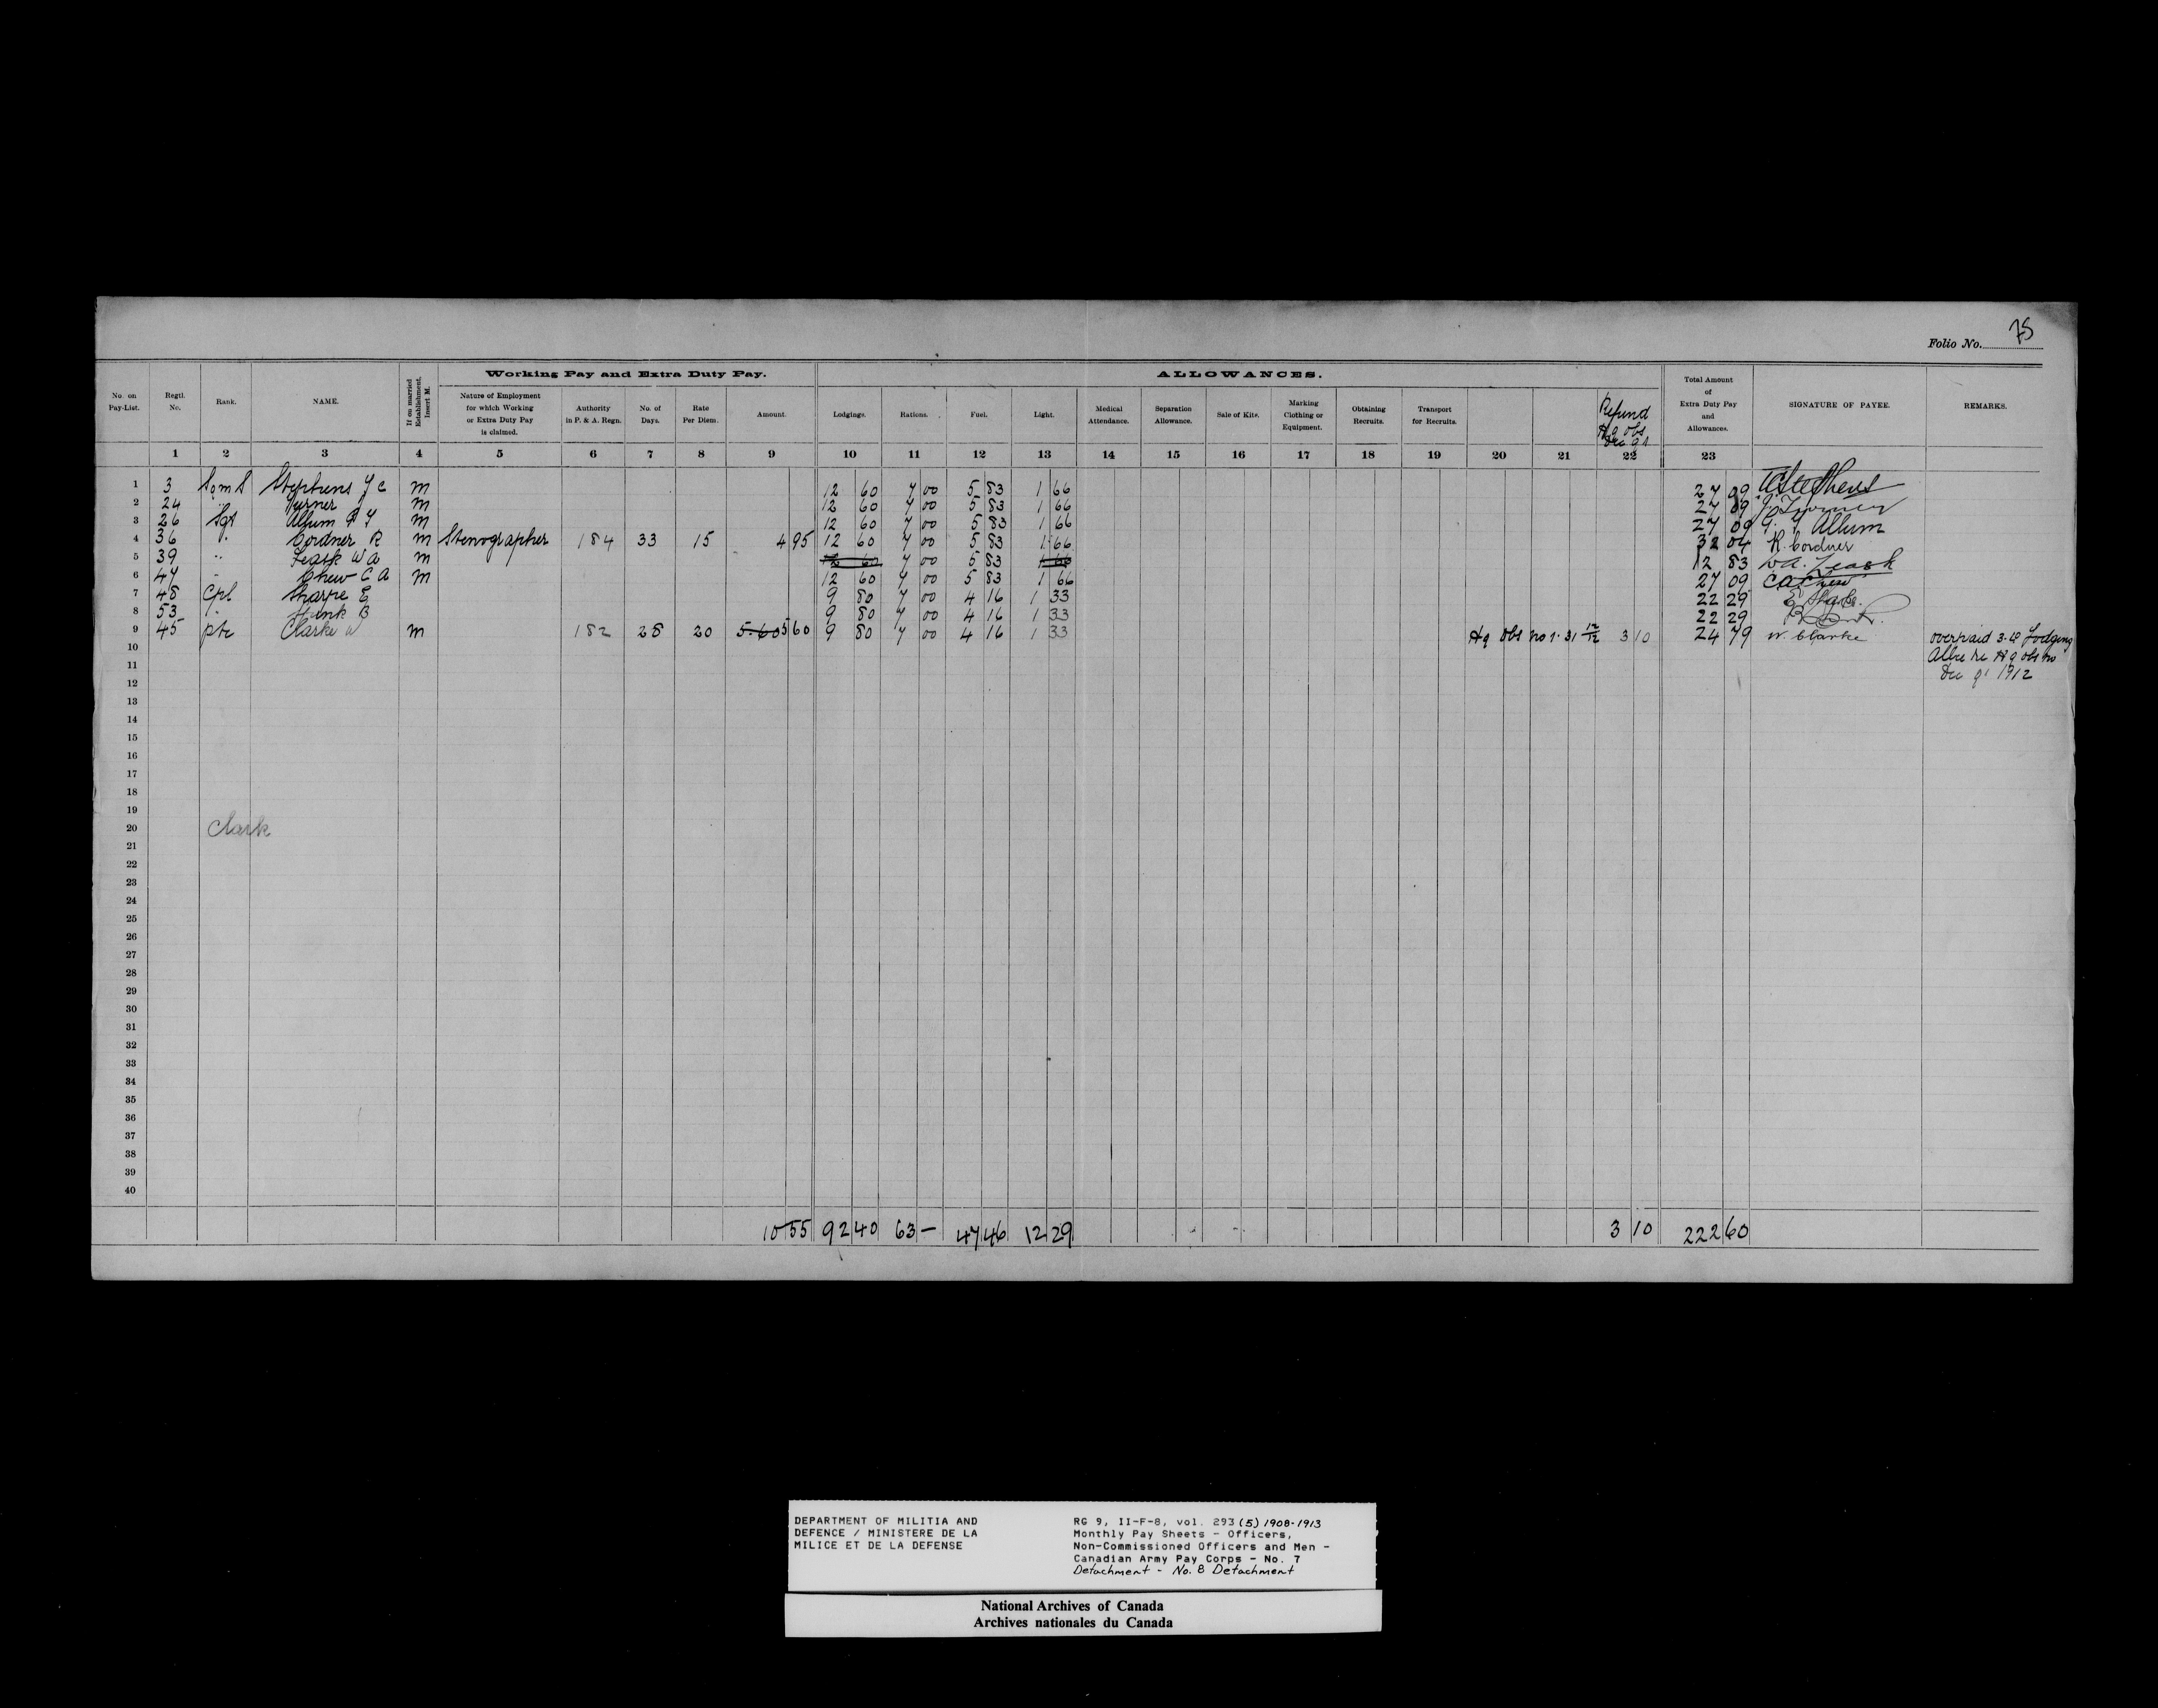 Folio No. 75
Working Pay and Extra Duty Pay.
ALLOWANCES.
No. on Pay-List. Regtl. No. Rank. NAME. If on married Establishment, Insert M. Nature of Employment for which Working or Extra Duty Pay is claimed. Authority in P. & A. Regn. No. of Days. Rate Per Diem. Amount. Lodgings. Rations. Fuel. Light. Medical Attendance. Separation Allowance. Sale of Kits. Marking Clothing or Equipment. Obtaining Recruits. Transport for Recruits. Refund Hq obs Dec 91 Total Amount of Extra Duty Pay and Allowances. SIGNATURE OF PAYEE. REMARKS.
1 2 3 4 5 6 7 8 9 10 11 12 13 14 15 16 17 18 19 20 21 22 23
1 3 Stephens J C m 12 60 7 00 5 83 1 66 27 09 Stephens
2 24 " Turner J m 12 60 7 00 5 83 1 66 27 09 J. Turner
3 26 Sgt Allum G Y m 12 60 7 00 5 83 1 66 27 09 G. Y Allum
4 36 " Cordner R m Stenographer 184 33 15 4 95 12 60 7 00 5 83 1 66 32 04 R. Cordner
5 39 " Leask W A m 12 60 7 00 5 83 1 66 12 83 W A. Leask
6 47 " Chew C A m 12 60 7 00 5 83 1 66 27 09 C A Chew
7 48 Cpl Sharpe E 9 80 7 00 4 16 1 33 22 29 E Sharpe.
8 53 " B 9 80 7 00 4 16 1 33 22 29
9 45 pte Clarke W m 182 28 20 5.60 5 60 9 80 7 00 4 16 1 33 Hq obs no 1. 31 12/12 3 10 24 79 W. Clarke overpaid 3.10 Lodging
10 Allce re Hq obs no
11 Dec 91 1912
12
13
14
15
16
17
18
19
20 Clark
21
22
23
24
25
26
27
28
29
30
31
32
33
34
35
36
37
38
39
40
10 55 92 40 63 — 47 46 12 29 3 10 222 60
DEPARTMENT OF MILITIA AND
DEFENCE / MINISTERE DE LA
MILICE ET DE LA DEFENSE
RG 9, II-F-8, vol. 293 (5) 1908-1913
Monthly Pay Sheets - Officers,
Non-Commissioned Officers and Men -
Canadian Army Pay Corps - No. 7
Detachment - No. 8 Detachment
National Archives of Canada
Archives nationales du Canada